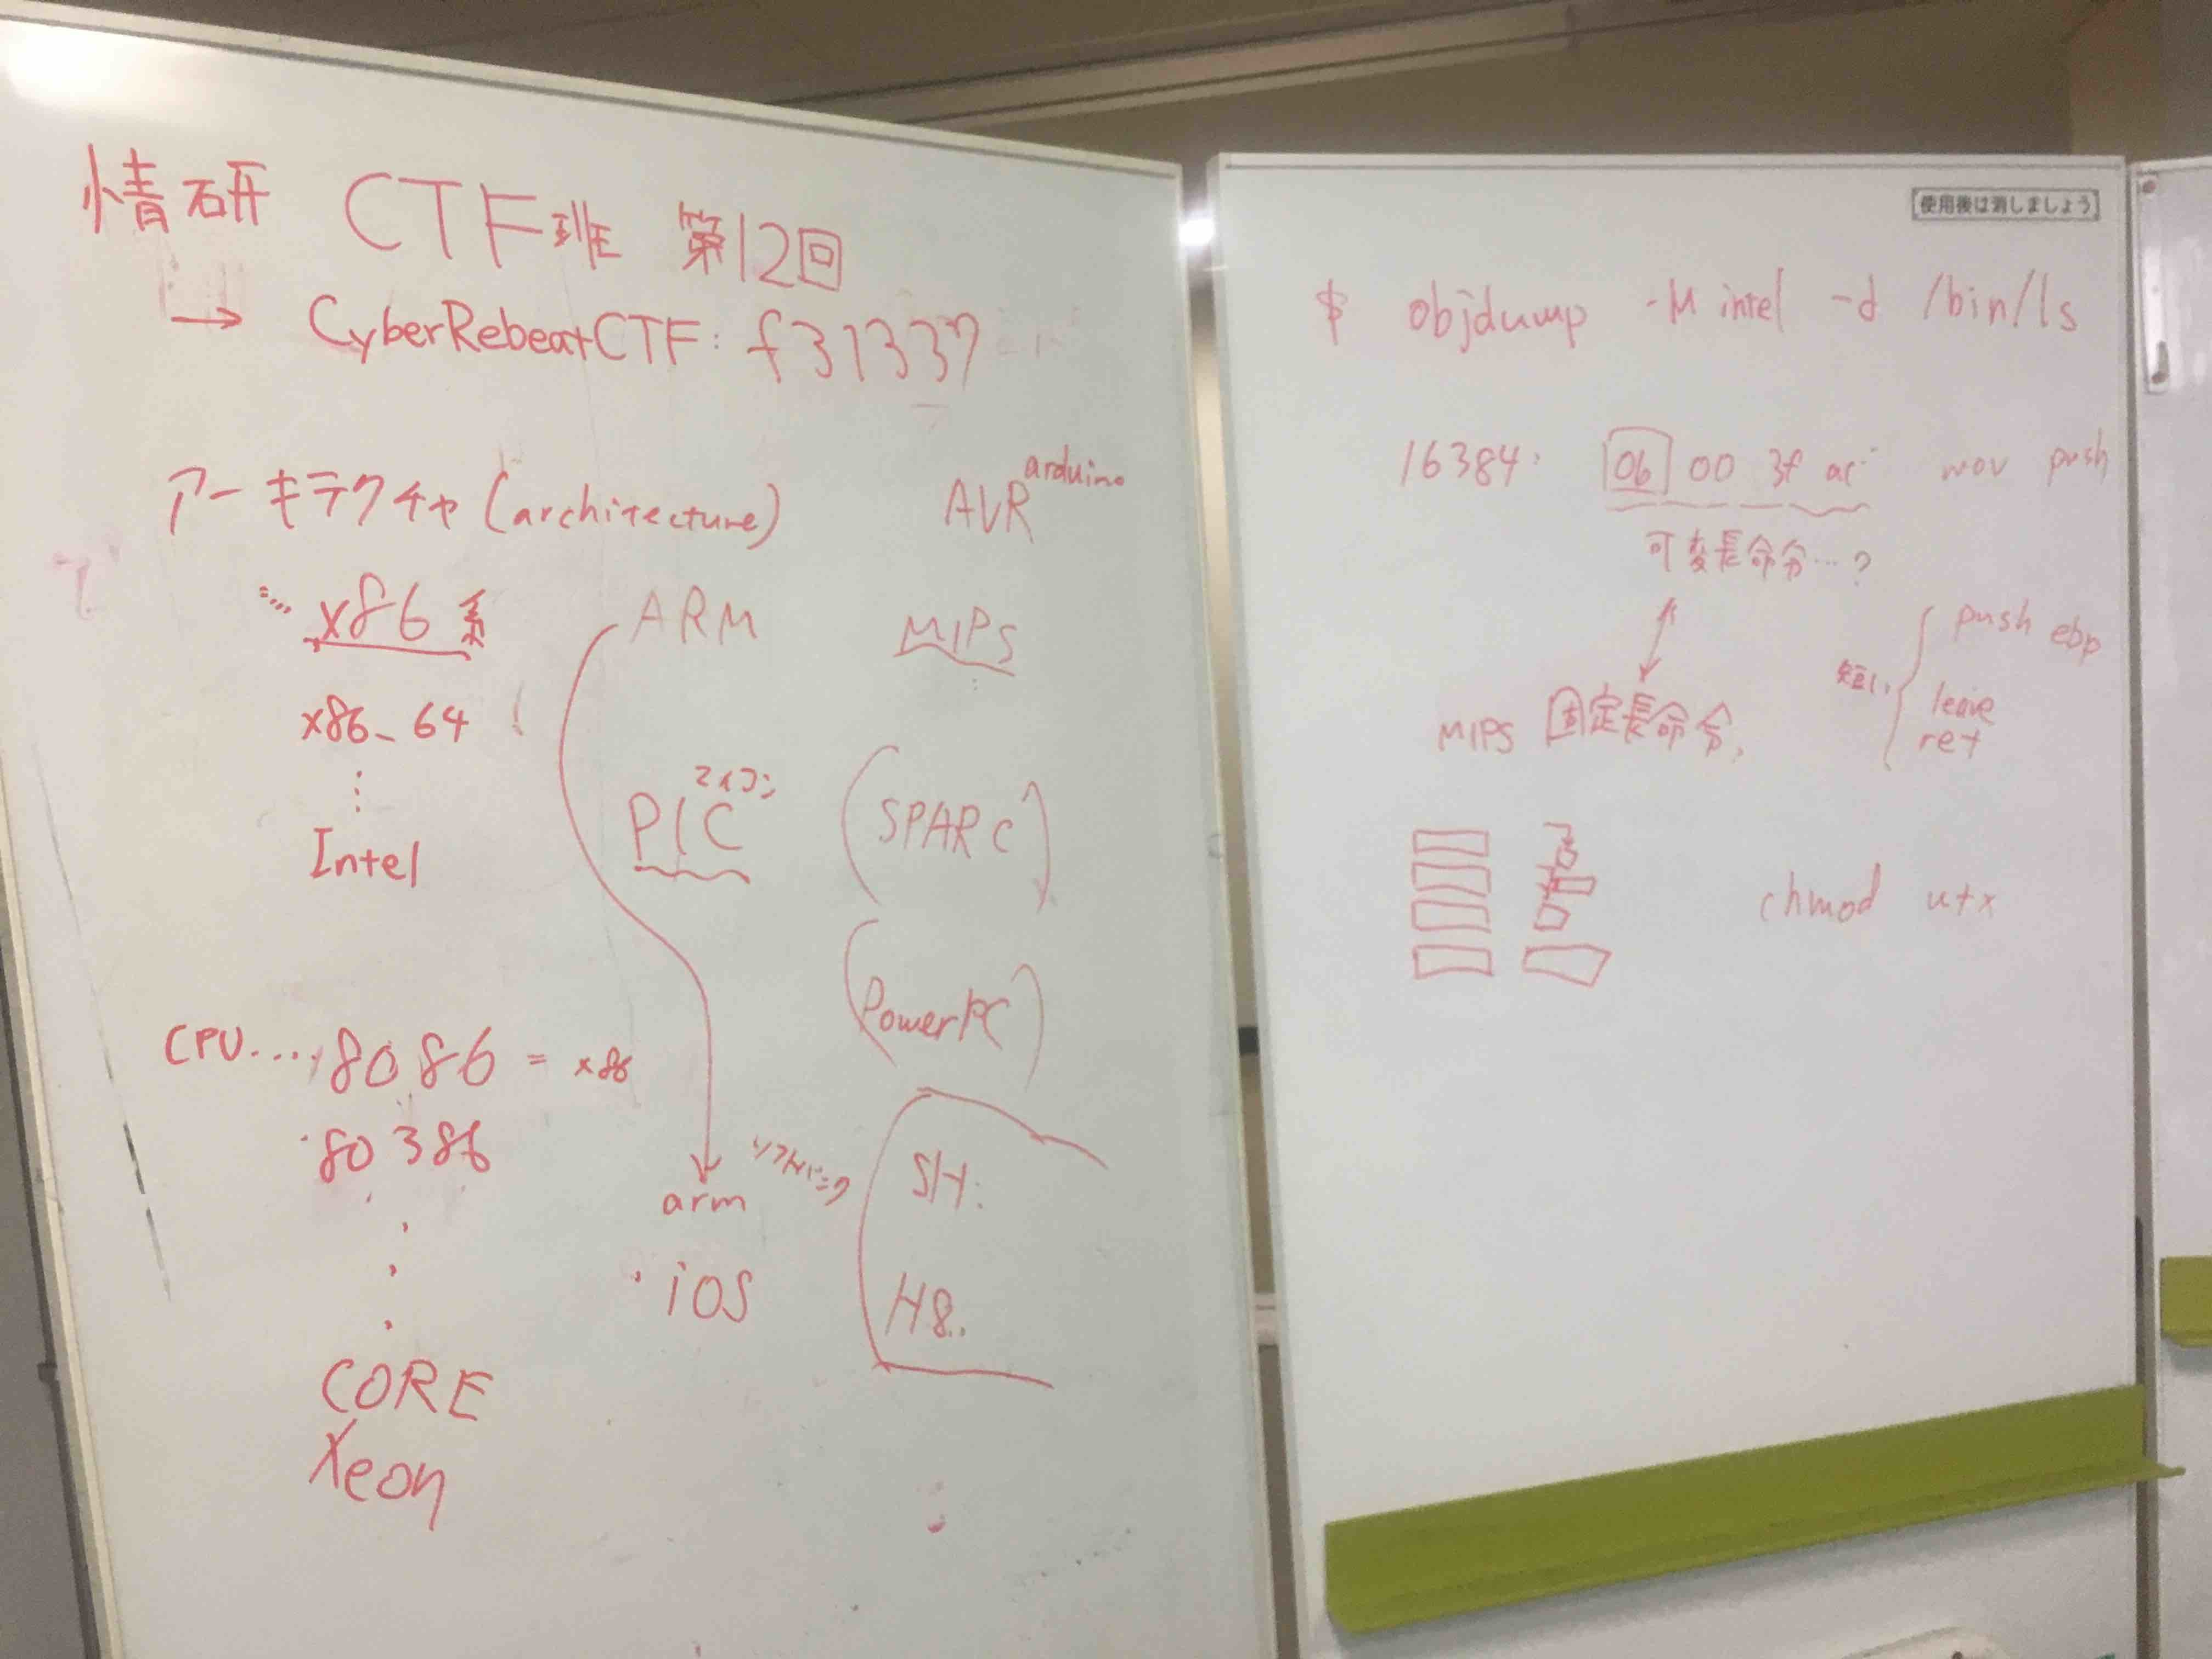 情研 CTF班 第12回
→ CyberRebeatCTF: f31337
アーキテクチャ (architecture)
AVR arduino
x86系
ARM
MIPS
x86_64
⋮
Intel
PIC マイコン
(SPARC)
(PowerPC)
CPU.... 8086 = x86
80386
CORE
Xeon
arm
iOS
ソフトバンク
SH.
H8.
使用後は消しましょう
$ objdump -M intel -d /bin/ls
16384: 06 00 3f ac mov push
可変長命令…?
MIPS 固定長命令
短い
push ebp
leave
ret
chmod u+x